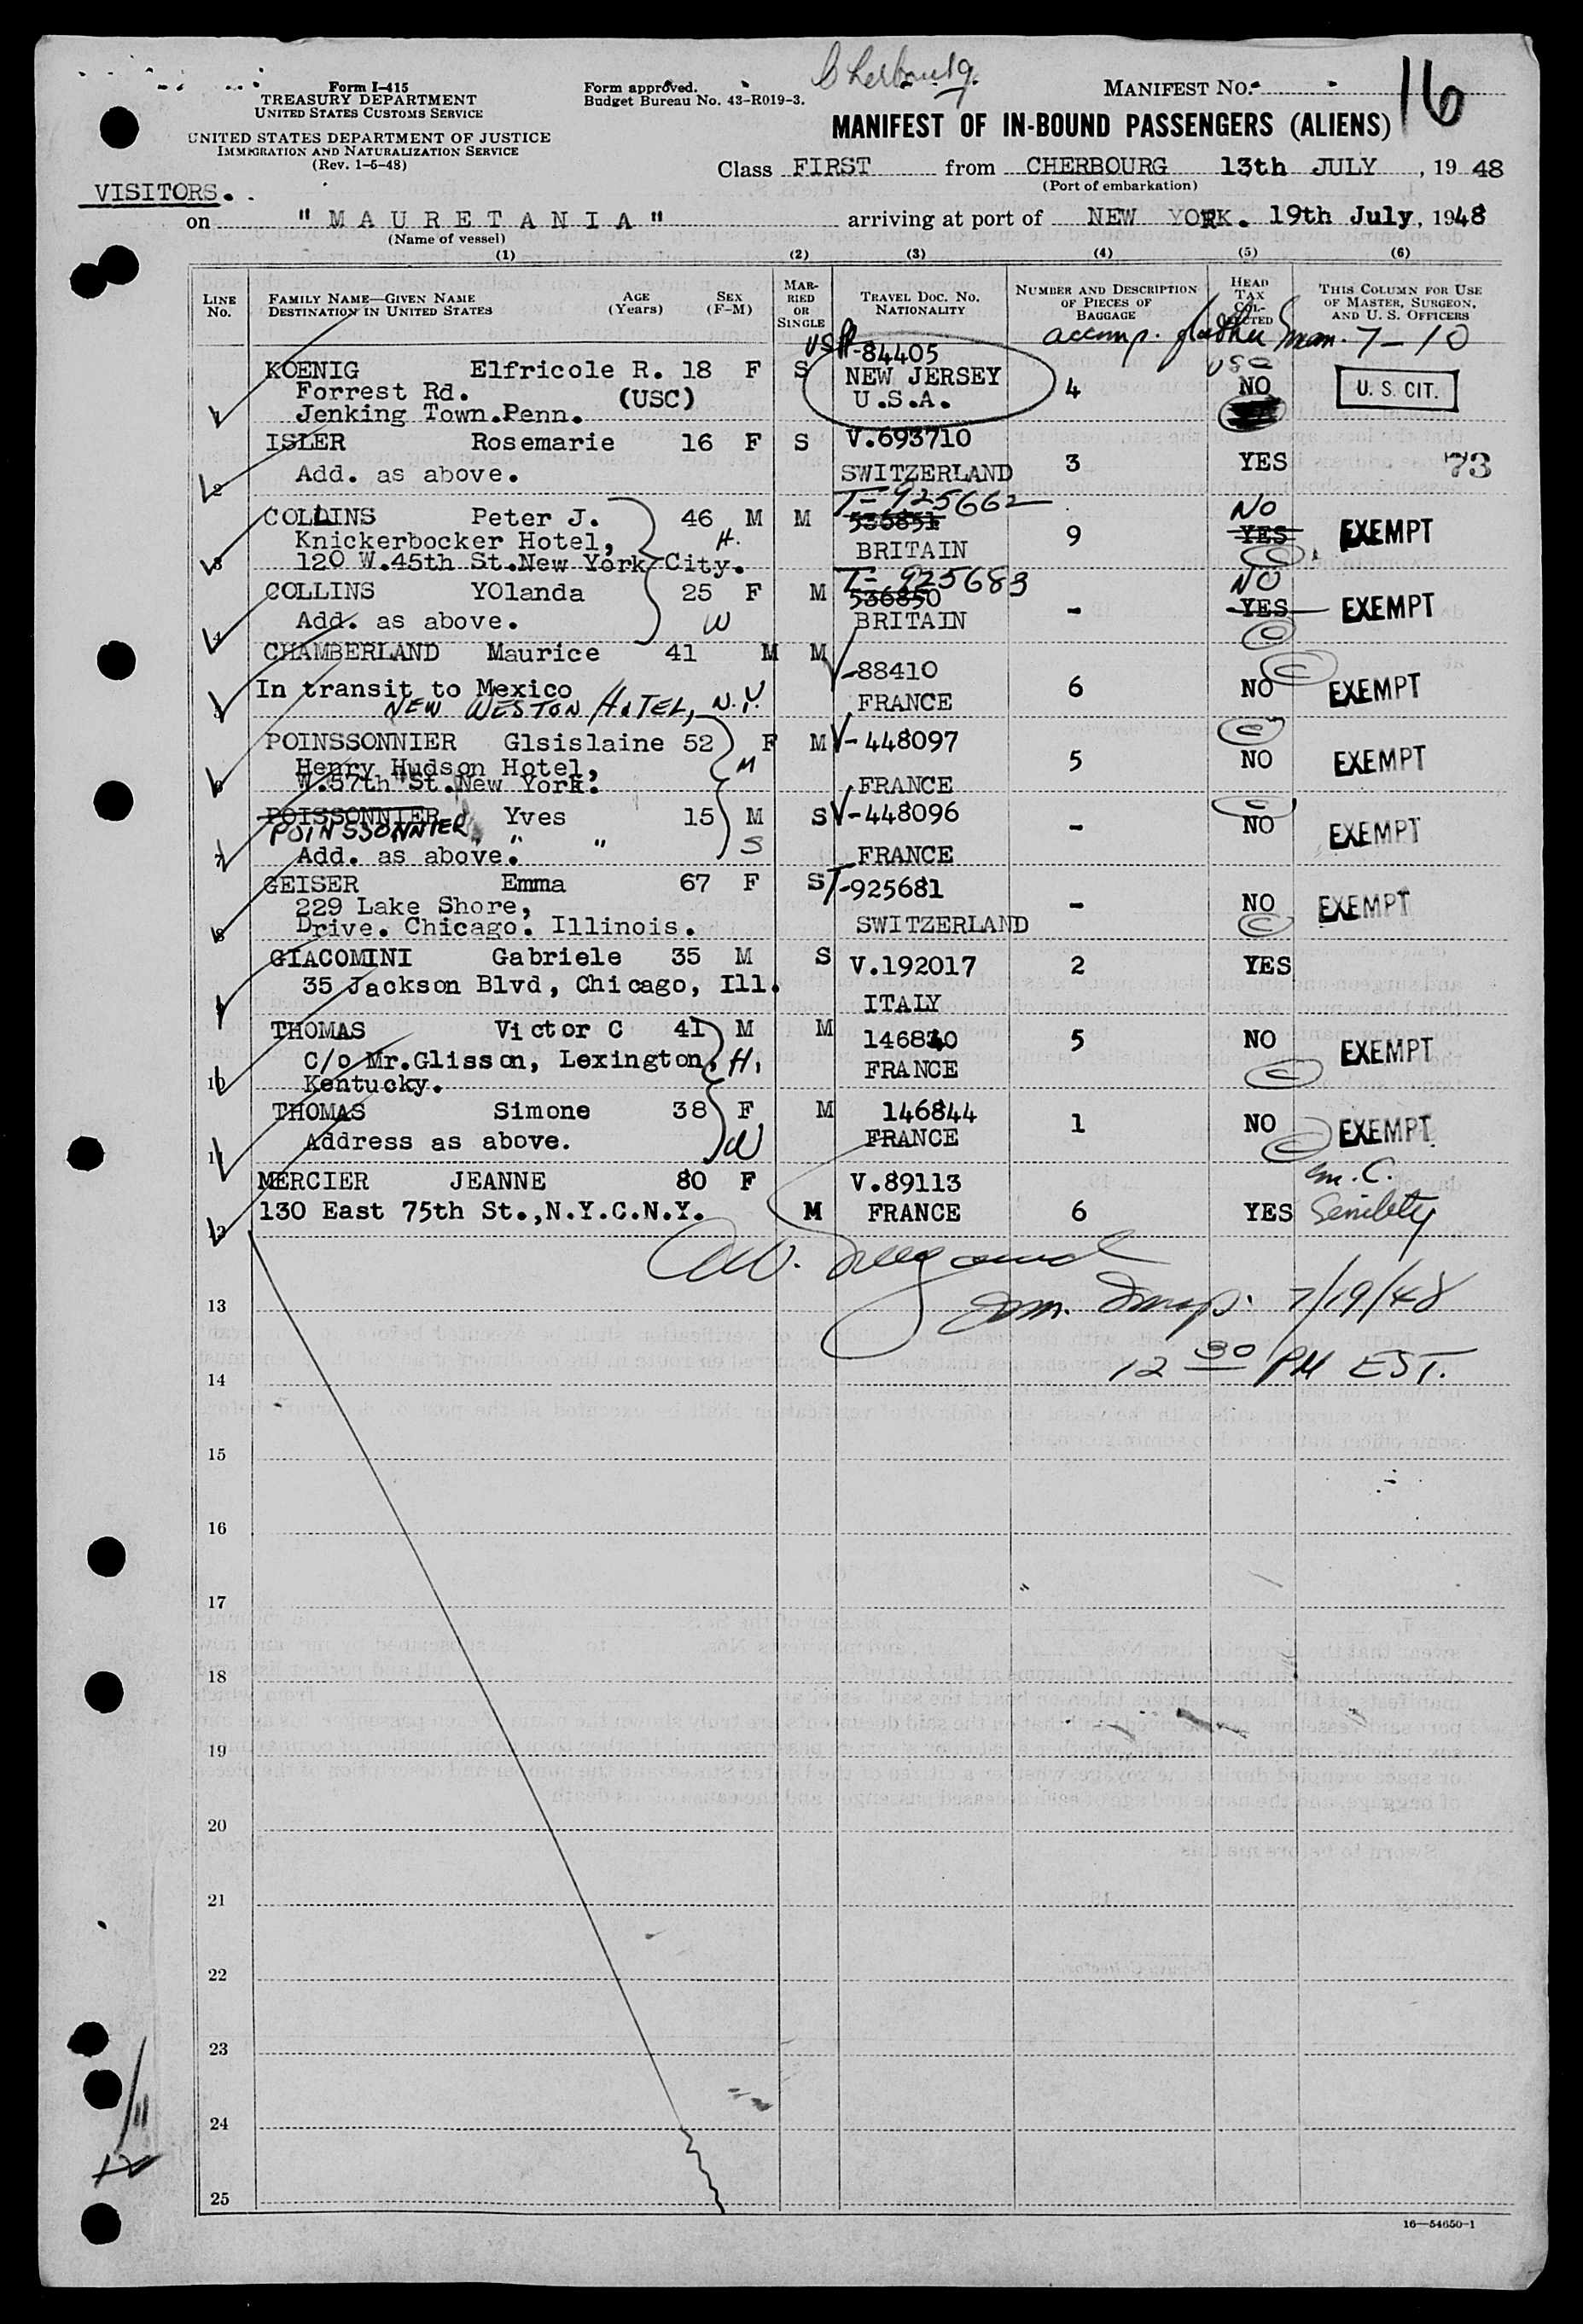 Cherbourg.
Form I-415
TREASURY DEPARTMENT
UNITED STATES CUSTOMS SERVICE
UNITED STATES DEPARTMENT OF JUSTICE
IMMIGRATION AND NATURALIZATION SERVICE
(Rev. 1-5-48)
Form approved.
Budget Bureau No. 43-R019-3.
MANIFEST NO. 16
MANIFEST OF IN-BOUND PASSENGERS (ALIENS)
Class FIRST from CHERBOURG 13th JULY, 19 48
(Port of embarkation)
VISITORS.
on "MAURETANIA" arriving at port of NEW YORK. 19th July, 1948
(Name of vessel)
(1) (2) (3) (4) (5) (6)
LINE No.
FAMILY NAME—GIVEN NAME
DESTINATION IN UNITED STATES
AGE (Years)
SEX (F-M)
MARRIED OR SINGLE
TRAVEL DOC. NO.
NATIONALITY
NUMBER AND DESCRIPTION OF PIECES OF BAGGAGE
HEAD TAX COLLECTED
THIS COLUMN FOR USE OF MASTER, SURGEON, AND U. S. OFFICERS
accomp. father man. 7-10
1 KOENIG Elfricole R. 18 F S USP-84405 4 NO U. S. CIT.
Forrest Rd. (USC) NEW JERSEY
Jenking Town.Penn. U.S.A.
usc
2 ISLER Rosemarie 16 F S V.693710 3 YES 73
Add. as above. SWITZERLAND
3 COLLINS Peter J. 46 M M T-925662 536851 9 NO YES EXEMPT
Knickerbocker Hotel, H. BRITAIN
120 W.45th St.New York City.
4 COLLINS YOlanda 25 F M T-925683 536850 - NO YES EXEMPT
Add. as above. W BRITAIN
5 CHAMBERLAND Maurice 41 M M V-88410 6 NO EXEMPT
In transit to Mexico FRANCE
NEW WESTON HOTEL, N.Y.
6 POINSSONNIER Glsislaine 52 F M V-448097 5 NO EXEMPT
Henry Hudson Hotel, M
W.57th St.New York. FRANCE
7 POISSONNIER Yves 15 M S V-448096 - NO EXEMPT
POINSSONNIER " " S
Add. as above. FRANCE
8 GEISER Emma 67 F S T-925681 - NO EXEMPT
229 Lake Shore,
Drive. Chicago. Illinois. SWITZERLAND
9 GIACOMINI Gabriele 35 M S V.192017 2 YES
35 Jackson Blvd, Chicago, Ill. ITALY
10 THOMAS Victor C 41 M M 146840 5 NO EXEMPT
C/o Mr.Glisson, Lexington, H. FRANCE
Kentucky.
11 THOMAS Simone 38 F M 146844 1 NO EXEMPT
Address as above. W FRANCE
12 MERCIER JEANNE 80 F V.89113
130 East 75th St.,N.Y.C.N.Y. M FRANCE 6 YES
m.C.
Senility
Imm. Insp. 7/19/48
12 30 PM EST.
13
14
15
16
17
18
19
20
21
22
23
24
25
16—54650-1